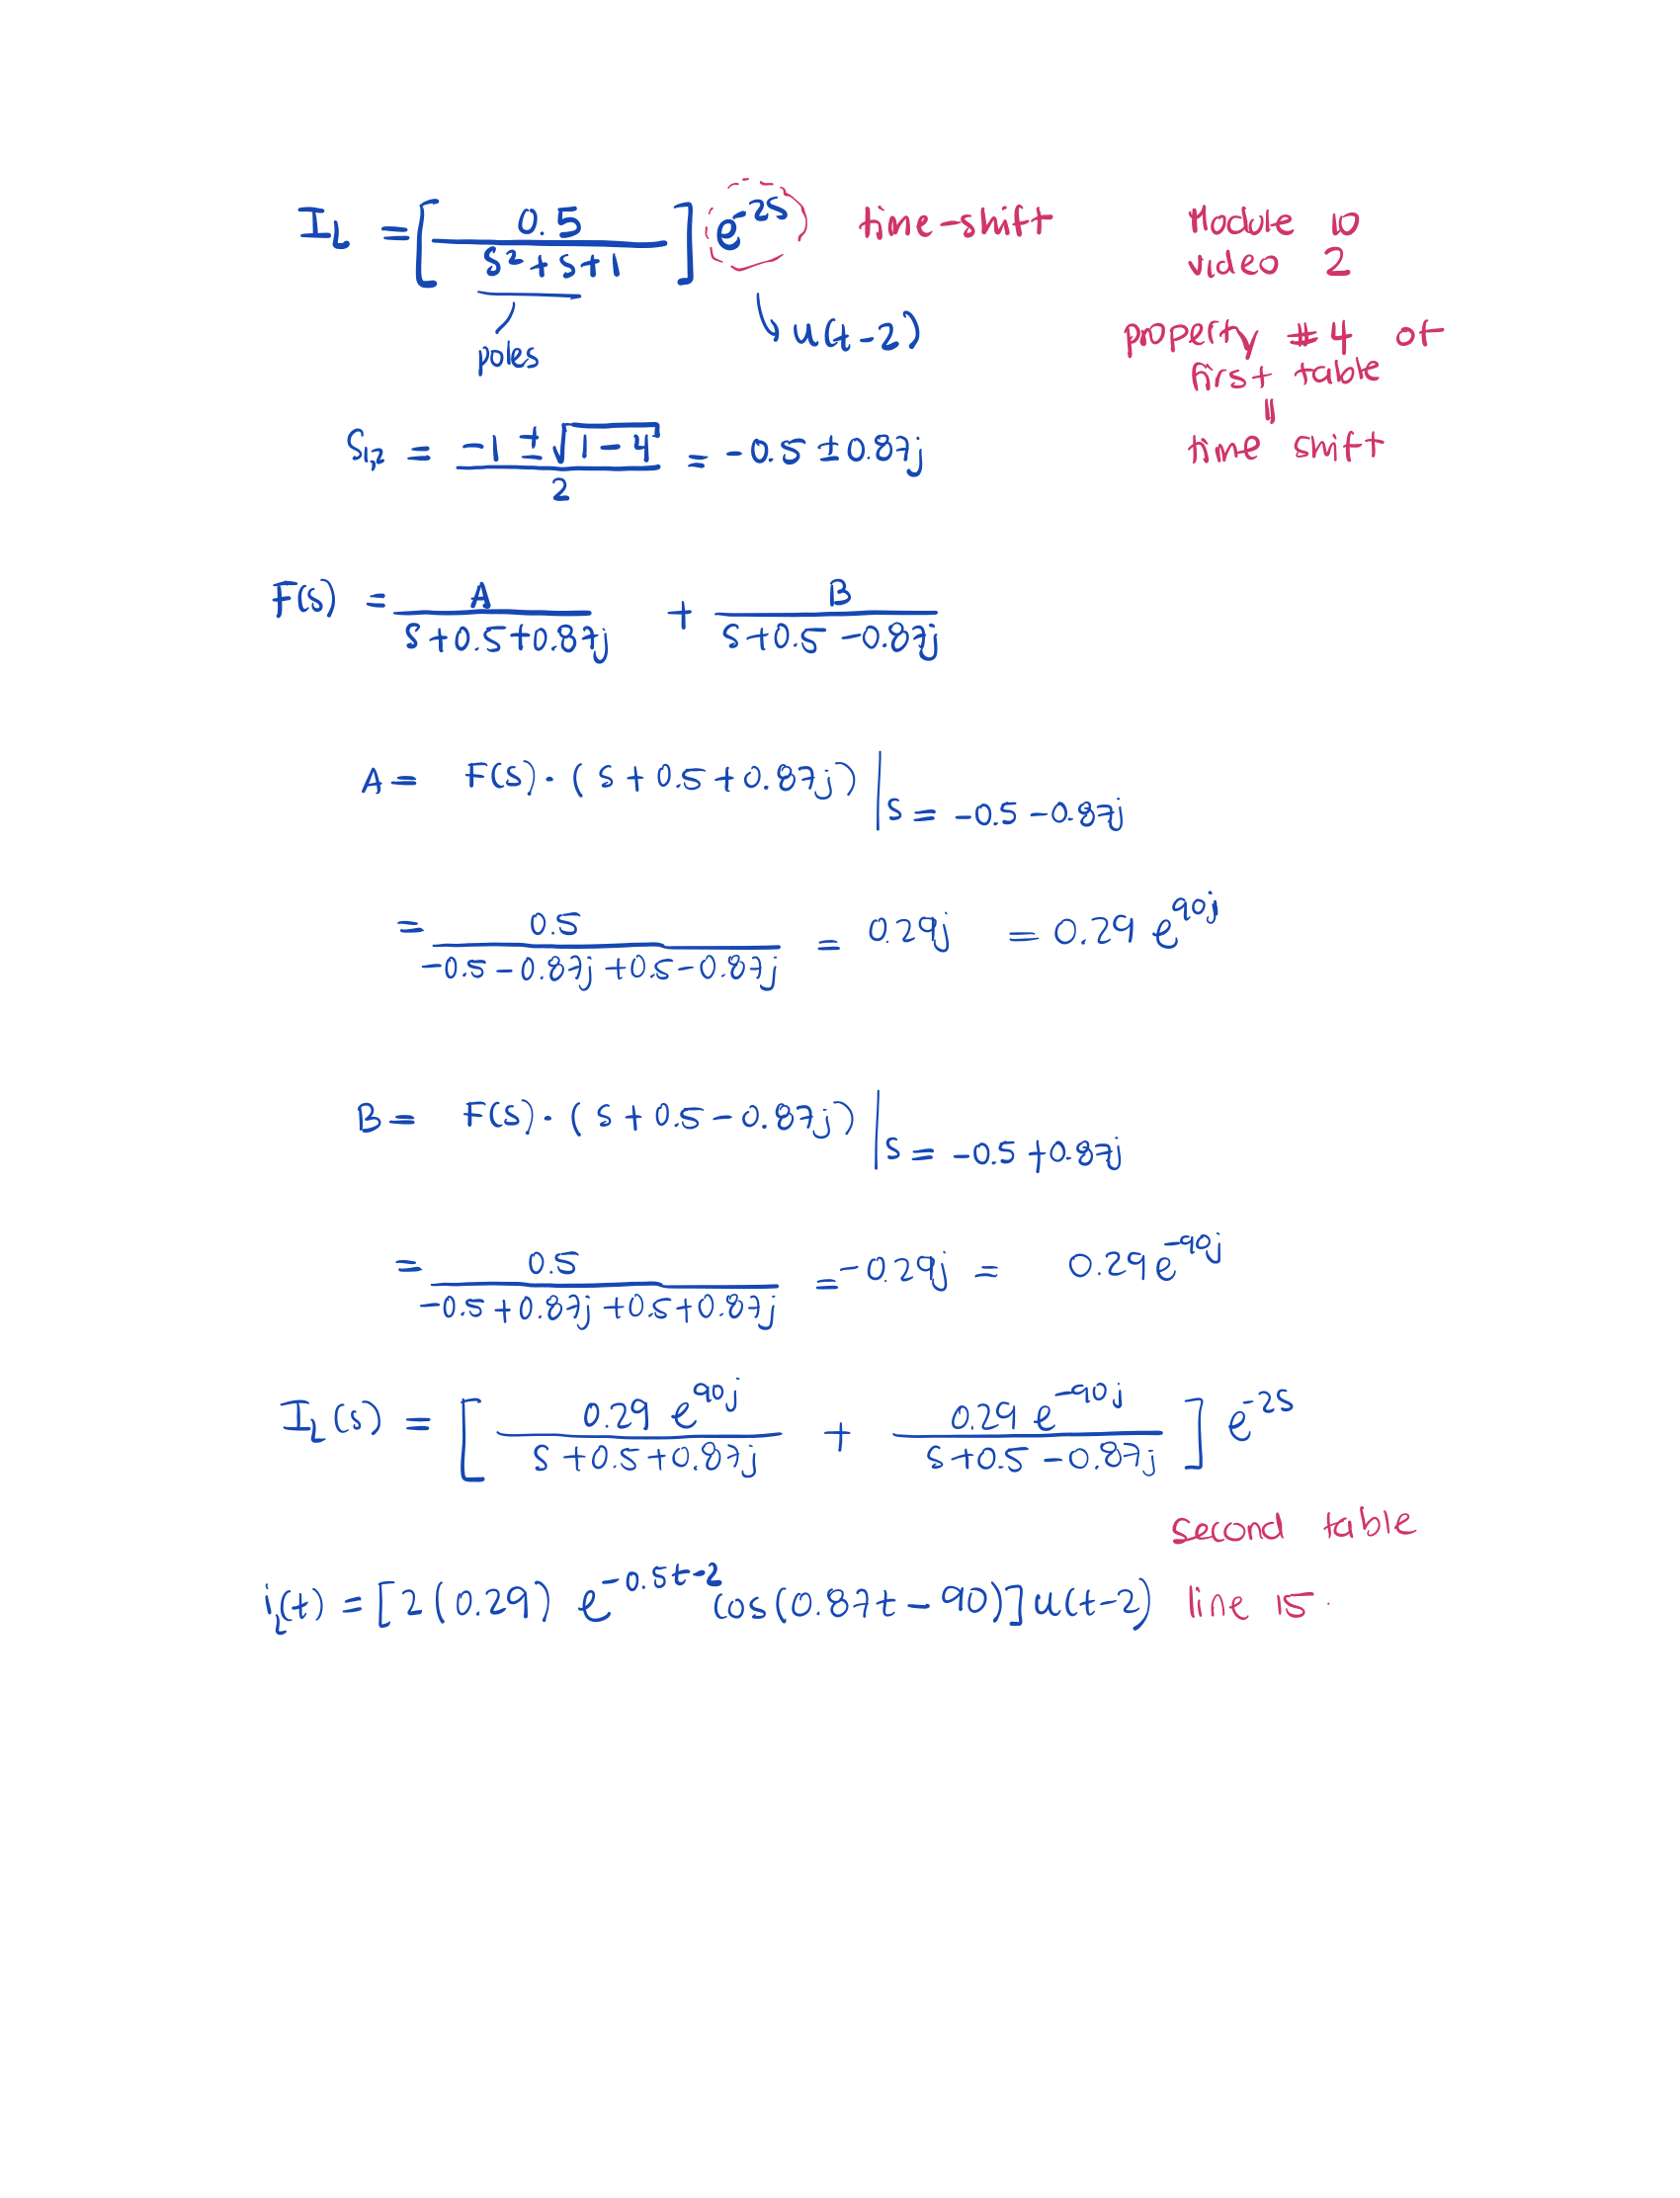 I_L = [ 0.5 / (s² + s + 1) ] e^{-2s} time-shift Module 10
video 2
poles u(t-2) property #4 of
first table
||
time shift
S_{1,2} = (-1 ± √(1-4)) / 2 = -0.5 ± 0.87j
F(s) = A / (s + 0.5 + 0.87j) + B / (s + 0.5 - 0.87j)
A = F(s) · (s + 0.5 + 0.87j) | s = -0.5 - 0.87j
= 0.5 / (-0.5 - 0.87j + 0.5 - 0.87j) = 0.29j = 0.29 e^{90j}
B = F(s) · (s + 0.5 - 0.87j) | s = -0.5 + 0.87j
= 0.5 / (-0.5 + 0.87j + 0.5 + 0.87j) = -0.29j = 0.29 e^{-90j}
I_L(s) = [ 0.29 e^{90j} / (s + 0.5 + 0.87j) + 0.29 e^{-90j} / (s + 0.5 - 0.87j) ] e^{-2s}
second table
i_L(t) = [2(0.29) e^{-0.5t-2} cos(0.87t - 90)] u(t-2) line 15.